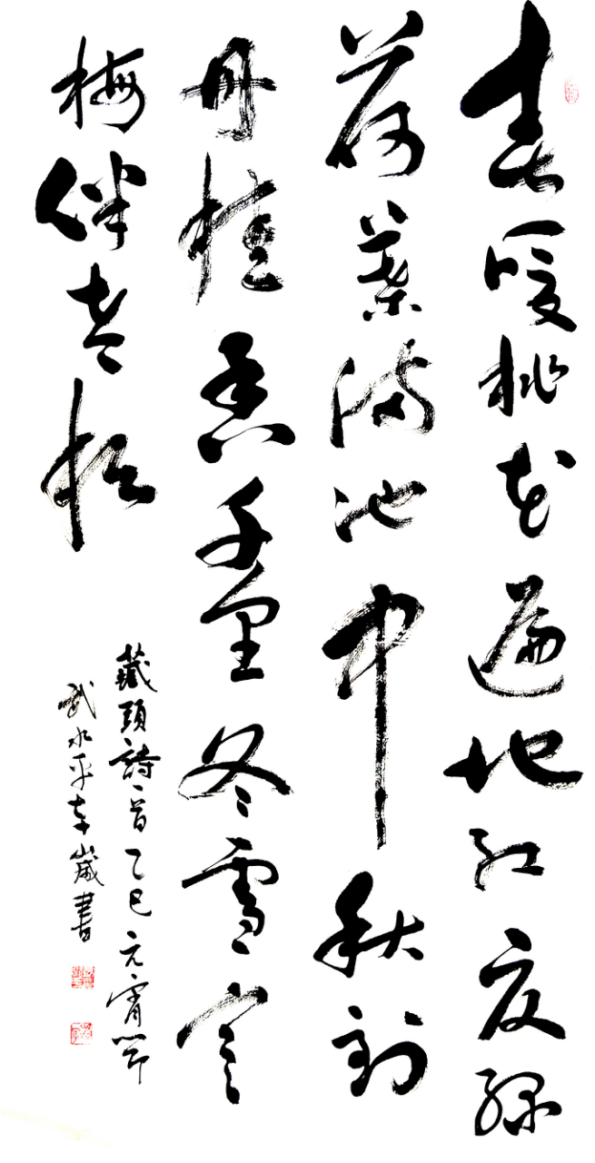 春暖桃花遍地红夏绿
荷葉满池中秋到
丹桂香千里冬雪寒
梅伴老松
藏頭詩一首乙巳元宵節
武水平 崴書